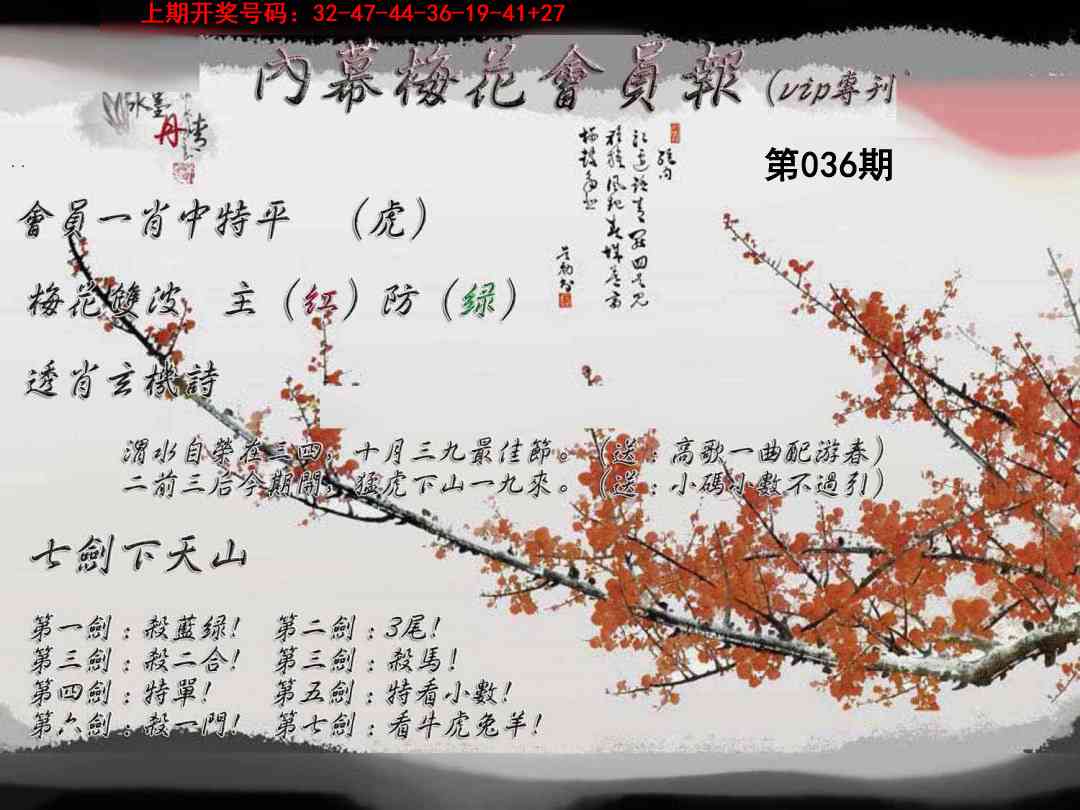 上期开奖号码：32-47-44-36-19-41+27
內幕梅花會員報（vip專刊
水墨丹清
第036期
會員一肖中特平　（虎）
梅花雙波　主（红）防（绿）
透肖玄機詩
渭水自榮在三四，十月三九最佳節。（送：高歌一曲配游春）
二前三后今期開，猛虎下山一九來。（送：小碼小數不過引）
七劍下天山
第一劍：殺藍绿！　第二劍：3尾！
第三劍：殺二合！　第三劍：殺馬！
第四劍：特單！　第五劍：特看小數！
第六劍：殺一門！　第七劍：看牛虎兔羊！